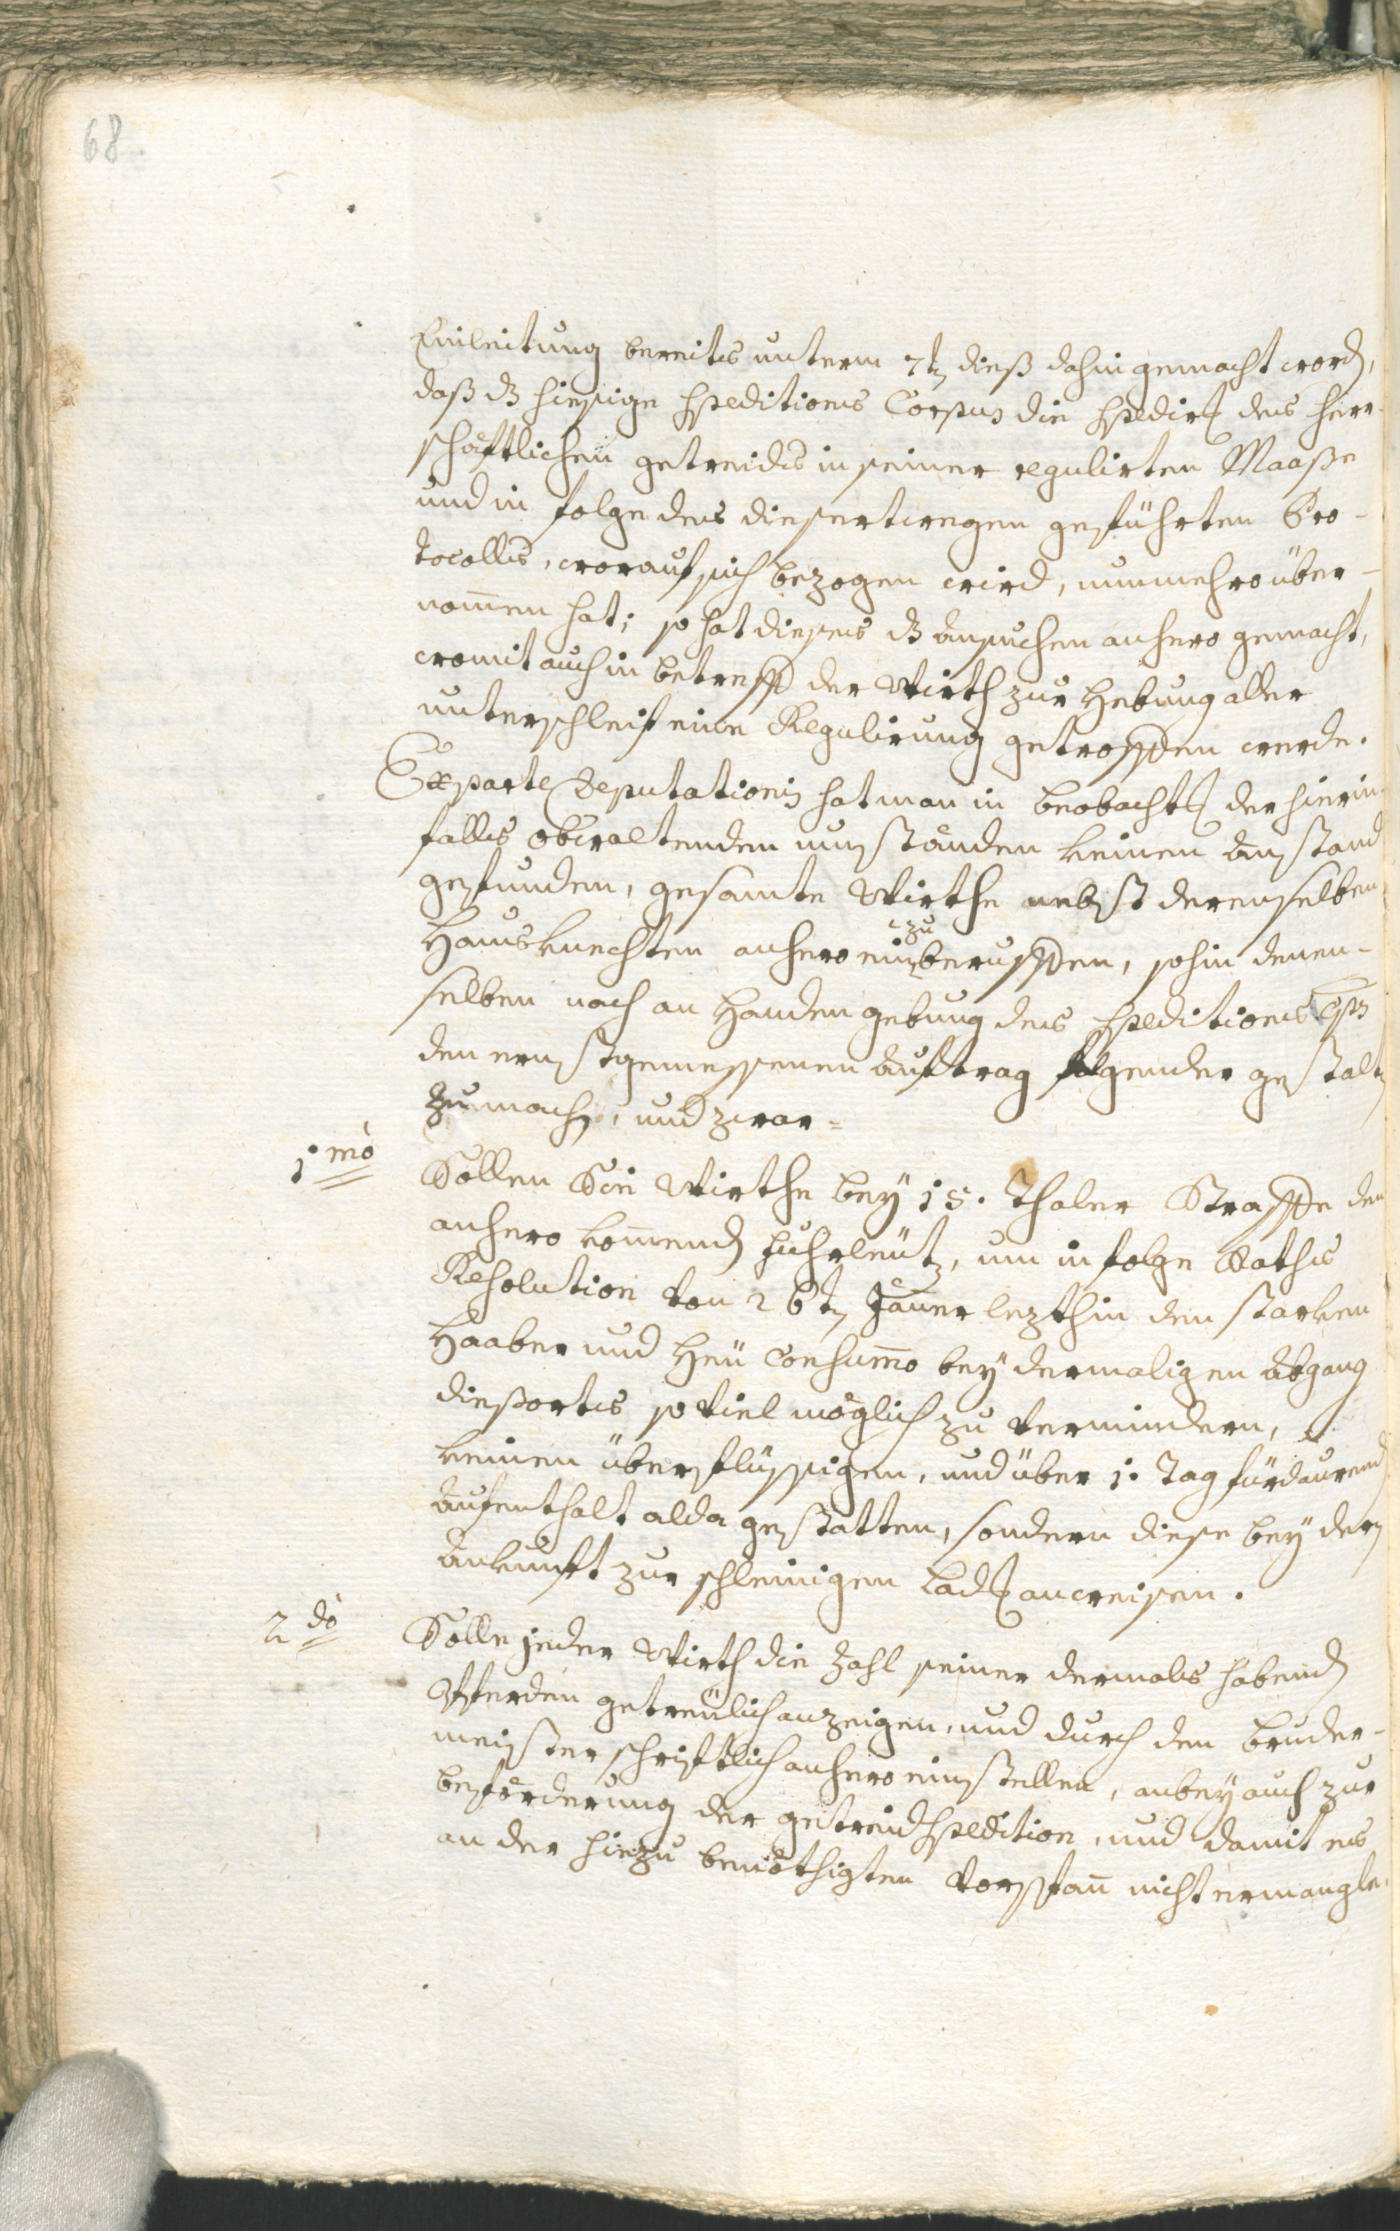 68
Einleitung bereits unterm 7tn dieß dahin gemacht word,
daß dz hiesige Speditions Corpus die Spedirg des herr-
schaftlichen getreides in seiner regulirten Maaße
und in folge des dießertwegen geführten Pro-
tocolls, worauf sich bezogen wird, nunmehro über-
nom̄en hat; so hat dieses dz ansuchen anhero gemacht,
womit auch in betreff der Wirth zur Hebung aller
unterschleif eine Regulirung getroffen werde.
Ex parte Deputationis hat man in beobachtg der hierin-
falls obwaltenden umständen keinen anstand
gefunden, gesamte Wirthe nebst derenselben
Hausknechten anhero einzuberuffen, sohin denen-
selben nach an Handengebung des Speditions Cps
den ernstgemessenen auftrag folgender gestalt
zu mach, und zwar=
1mo Sollen Sie Wirthe bey 15. Thaler Straffe den
anhero kom̄end fuhrleut, um in folge Raths
Resolution von 26tn Jäner lezthin den starken
Haaber und Heü Consum̄o bey dermaligen abgang
dießorts so viel möglich zu vermindern,
keinen überflüssigen, und über 1. Tag fürdaurend
aufenthalt alda gestatten, sondern diese bey der
ankunft zur schleinigen Ladg anweisen.
2do Solle jeder Wirth die zahl seiner dermals habend
Pferden getreülich anzeigen, und durch den bruder-
meister schriftlich anhero einstellen, anbey auch zur
beförderung der getreid Spedition, und damit es
an der hiezu benöthigten Vorspan̄ nicht ermangle,